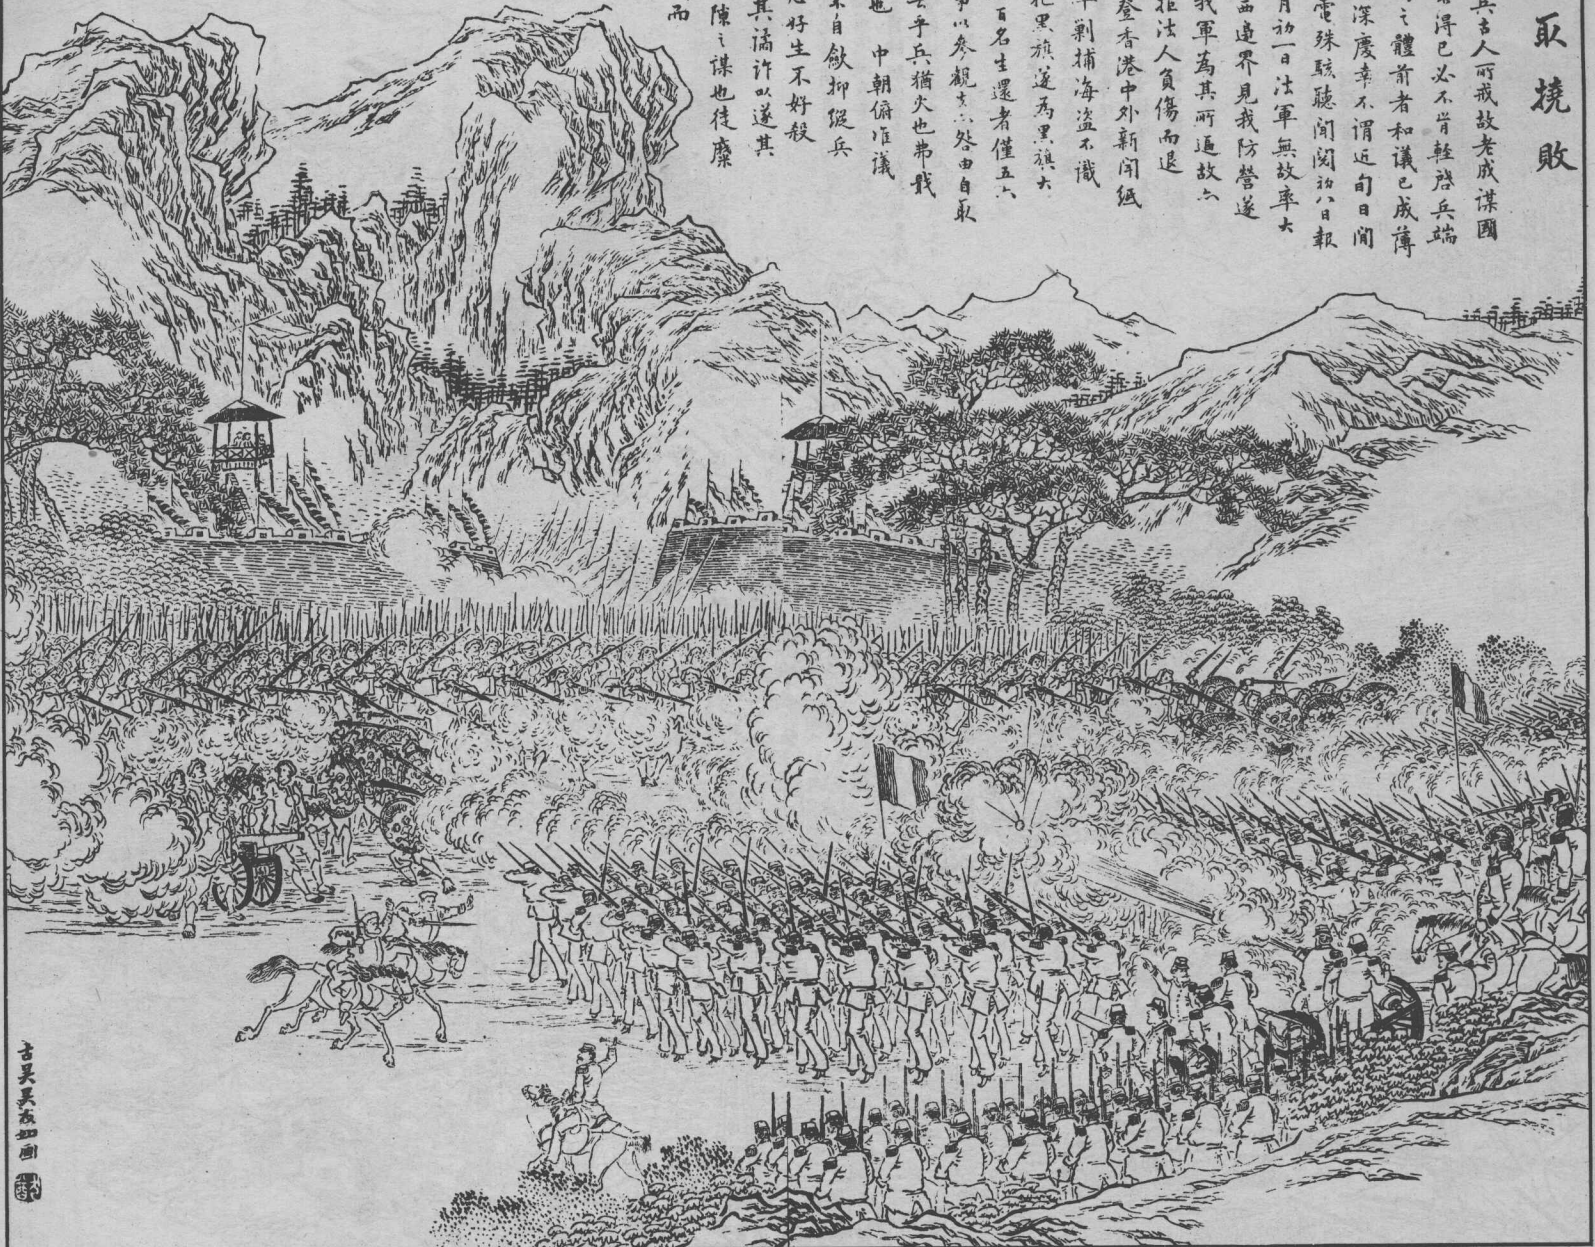 取撓敗
兵古人所戒故老成謀國
得已必不肯輕啓兵端
之體前者和議已成薄
深慶幸不謂近旬日間
電殊駭聽聞閱初八日報
月初一日法軍無故率大
西邊界見我防營遂
我軍為其所逼故亦
拒法人負傷而退
登香港中外新聞紙
剿捕海盜不識
犯黑旗遂為黑旗大
百名生還者僅五六
事以參觀之亦咎由自取
乎兵猶火也弗戢
也 中朝俯准議
自斂抑縱兵
好生不好殺
其譎詐以遂其
陳之謀也徒糜
而
古吳吳友如畫